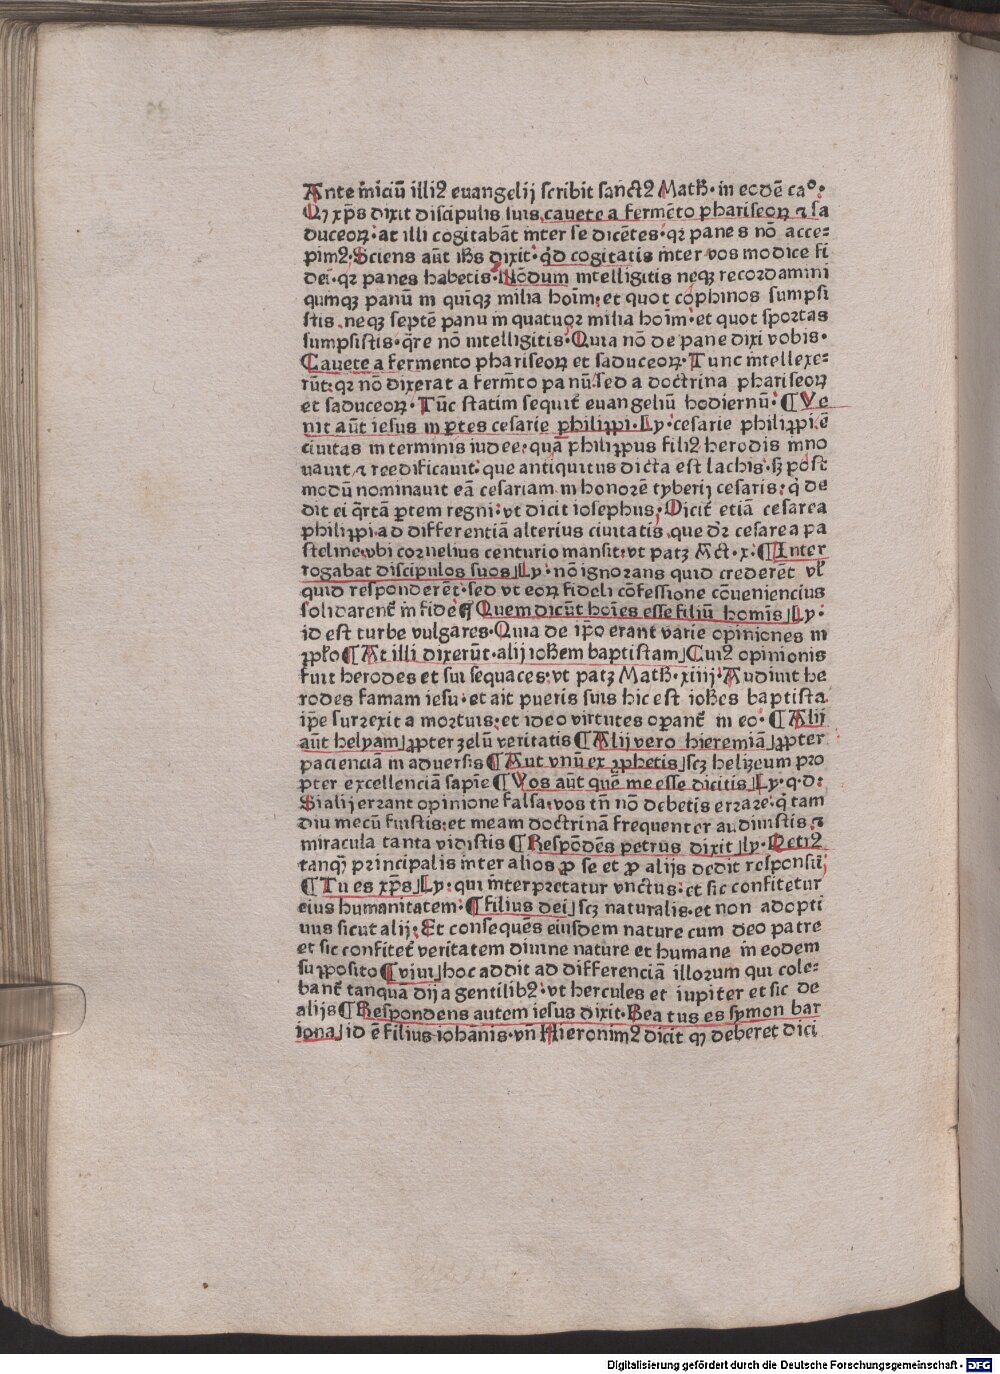 Ante iniciū illiꝰ euangelij scribit sanctꝰ Math̄· in eodē cao·
Qꝫ xp̄s dixit discipulis suis cauete a fermēto phariseoꝝ ⁊ sa
duceoꝝ· at illi cogitabāt inter se dicētes· qꝛ panes nō acce⸗
pimꝰ· Sciens aūt ih̄s dixit· qͥd cogitatis inter vos modice fi
dei· qꝛ panes habetis· Nōdum intelligitis neqꝫ recordamini
qumqꝫ panū in quīqꝫ milia hoīm· et quot cophinos sumpsi
stis neqꝫ septē panū in quatuoꝛ milia hoīm· et quot spoꝛtas
sumpsistis· qͣre nō intelligitis· Quia nō de pane dixi vobis·
Cauete a fermento phariseoꝝ et saduceoꝝ· Tunc intellexe⸗
rūt· qꝛ nō dixerat a ferm̄to panū· sed a doctrina phariseoꝝ
et saduceoꝝ· Tūc statim sequit̄ euangeliū hodiernū· ¶ Ve
nit aūt iesus in ꝑtes cesarie philippi· Ly· cesarie philippi· ē
ciuitas in terminis iudee· quā philippus filiꝰ herodis inno
uauit ⁊ reedificauit· que antiquitus dicta est lachis· sꝫ post
modū nominauit eā cesariam in honoꝛē tyberij cesaris· qͥ de
dit ei qͣrtā ꝑtem regni· vt dicit iosephus· Dicit̄ etiā cesarea
philippi ad differentiā alterius ciuitatis que dr̄ cesarea pa
stelines vbi coꝛnelius centurio mansit· vt patꝫ Act· x· ¶ Inter
rogabat discipulos suos] Ly· nō ignoꝛans quid crederēt vl̄
quid responderēt· sed vt eoꝝ fideli cōfessione cōueniencius
solidarent̄ in fide ¶ Quem dicūt hoīes esse filiū hominis] Ly·
id est turbe vulgares· Quia de ip̄o erant varie opiniones in
ꝓpl̄o ¶ At illi dixerūt· alij ioh̄em baptistam] Cuiꝰ opinionis
fuit herodes et sui sequaces· vt patꝫ Math̄· xiiij· Audiuit he
rodes famam iesu· et ait pueris suis hic est ioh̄es baptista
ip̄e surrexit a moꝛtuis· et ideo virtutes opant̄ in eo· ¶ Alij
aūt helyam] ꝓpter zelū veritatis ¶ Alij vero hieremiā] ꝓpter
pacienciā in aduersis ¶ Aut vnū ex ꝓphetis] scꝫ helizeum pro
pter excellenciā sapīe ¶ Vos aūt quē me esse dicitis] Ly· q· d·
Si alij errant opinione falsa· vos tn̄ nō debetis errare· qͥ tam
diu mecū fuistis· et meam doctrinā frequenter audiuistis ⁊
miracula tanta vidistis ¶ Respōdēs petrus dixit] ly· Petrꝰ
tanqꝫ principalis inter alios ꝓ se et ꝓ alijs dedit responsū
¶ Tu es xp̄s] Ly· qui interpretatur vnctus· et sic confitetur
eius humanitatem· ¶ filius dei] scꝫ naturalis· et non adopti
uus sicut alij· Et consequēs eiusdem nature cum deo patre
et sic confitet̄ veritatem diuine nature et humane in eodem
supposito ¶ viui] hoc addit ad differenciā illoꝛum qui cole⸗
bant̄ tanquā dij a gentilibꝰ· vt hercules et iupiter et sic de
alijs ¶ Respondens autem iesus dixit· Beatus es symon bar
iona] id ē filius iohānis· vn̄ Hieronimꝰ dicit qꝫ deberet dici
Digitalisierung gefördert durch die Deutsche Forschungsgemeinschaft - DFG